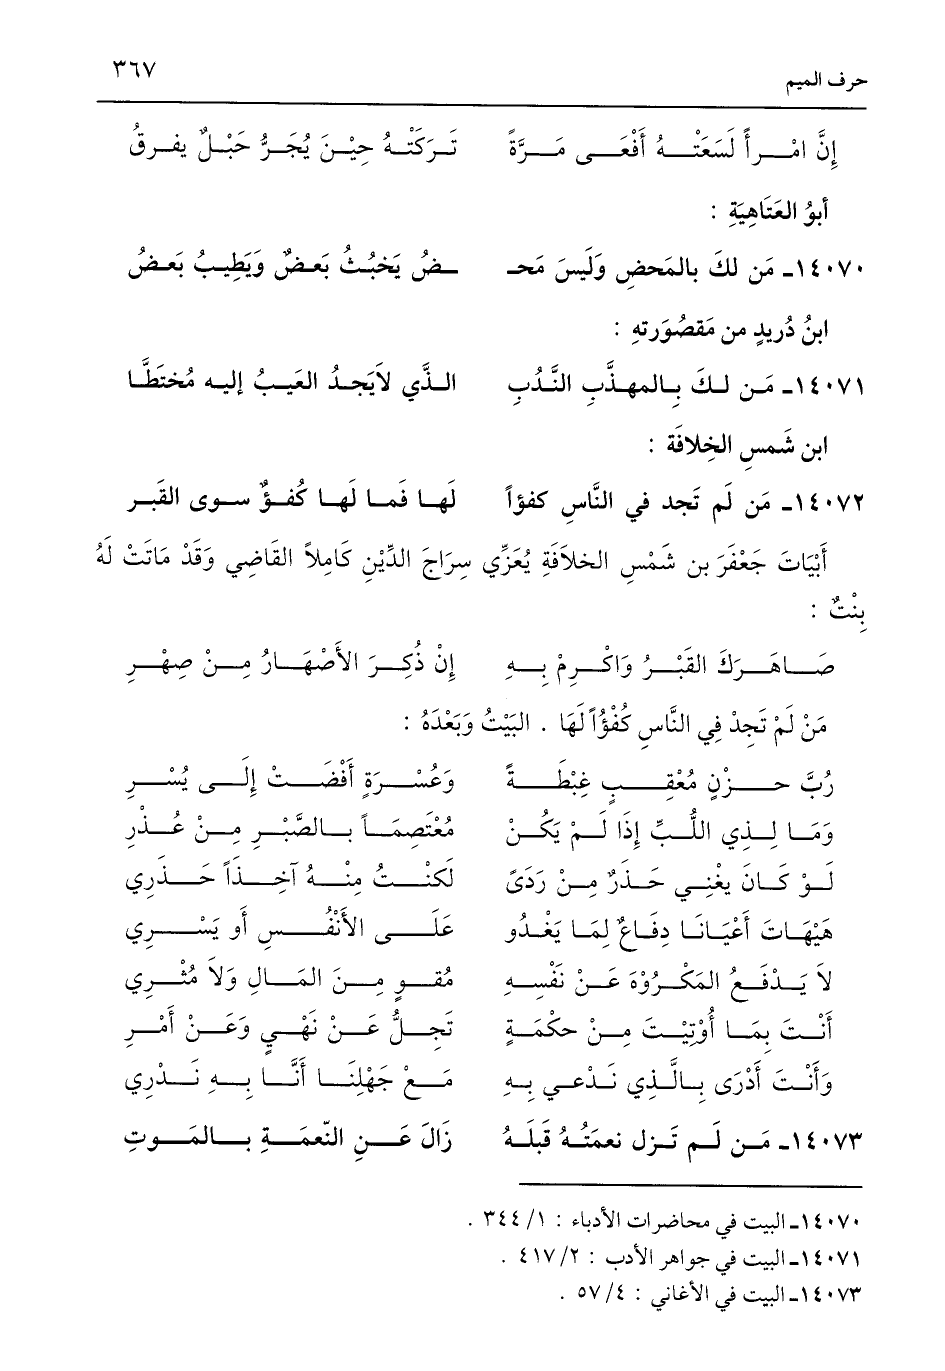 حرف الميم ٣٦٧
إِنَّ امْرأً لَسَعَتْهُ أَفْعَى مَرَّةً تَرَكَتْهُ حِيْنَ يُجَرُّ حَبْلٌ يفرقُ
أبوُ العَتَاهِيَةِ :
١٤٠٧٠ـ مَن لكَ بالمَحضِ وَلَيسَ مَحـ ـضُ يَخبُثُ بَعضٌ وَيَطِيبُ بَعضُ
ابنُ دُريدٍ من مَقصُوَرتهِ :
١٤٠٧١ـ مَن لكَ بِالمهذَّبِ النَّدُبِ الذَّي لاَيَجدُ العَيبُ إليه مُختَطَّا
ابن شَمسِ الخِلافَة :
١٤٠٧٢ـ مَن لَم تَجد في النَّاسِ كفؤاً لَها فَما لَها كُفؤٌ سوى القَبر
أَبْيَاتَ جَعْفَرَ بن شَمْسِ الخلاَفَةِ يُعَزِّي سِرَاجَ الدِّيْنِ كَامِلاً القَاضِي وَقَدْ مَاتَتْ لَهُ
بِنْتٌ :
صَاهَرَكَ القَبْرُ وَاكْرِمْ بِهِ إِنْ ذُكِرَ الأَصْهَارُ مِنْ صِهْرِ
مَنْ لَمْ تَجِدْ فِي النَّاسِ كُفْؤاً لَهَا . البَيْتُ وَبَعْدَهُ :
رُبَّ حَزْنٍ مُعْقِبٍ غِبْطَةً وَعُسْرَةٍ أَفْضَتْ إِلَى يُسْرِ
وَمَا لِذِي اللُّبِّ إِذَا لَمْ يَكُنْ مُعْتَصِمَاً بِالصَّبْرِ مِنْ عُذْرِ
لَوْ كَانَ يغْنِي حَذَرٌ مِنْ رَدَىً لَكُنْتُ مِنْهُ آخِذَاً حَذَرِي
هَيْهَاتَ أَعْيَانَا دِفَاعٌ لِمَا يَغْدُو عَلَى الأَنْفُسِ أَو يَسْرِي
لاَ يَدْفَعُ المَكْرُوْهَ عَنْ نَفْسِهِ مُقوٍ مِنَ المَالِ وَلاَ مُثْرِي
أَنْتَ بِمَا أُوْتِيْتَ مِنْ حِكْمَةٍ تَجِلُّ عَنْ نَهْيٍ وَعَنْ أَمْرِ
وَأَنْتَ أَدْرَى بِالَّذِي نَدْعِي بِهِ مَعْ جَهْلِنَا أَنَّا بِهِ نَدْرِي
١٤٠٧٣ـ مَن لَم تَزل نعمَتُهُ قَبلَهُ زَالَ عَنِ النّعمَةِ بِالمَوتِ
١٤٠٧٠ـ البيت في محاضرات الأدباء : ١/ ٣٤٤ .
١٤٠٧١ـ البيت في جواهر الأدب : ٢/ ٤١٧ .
١٤٠٧٣ـ البيت في الأغاني : ٤/ ٥٧ .